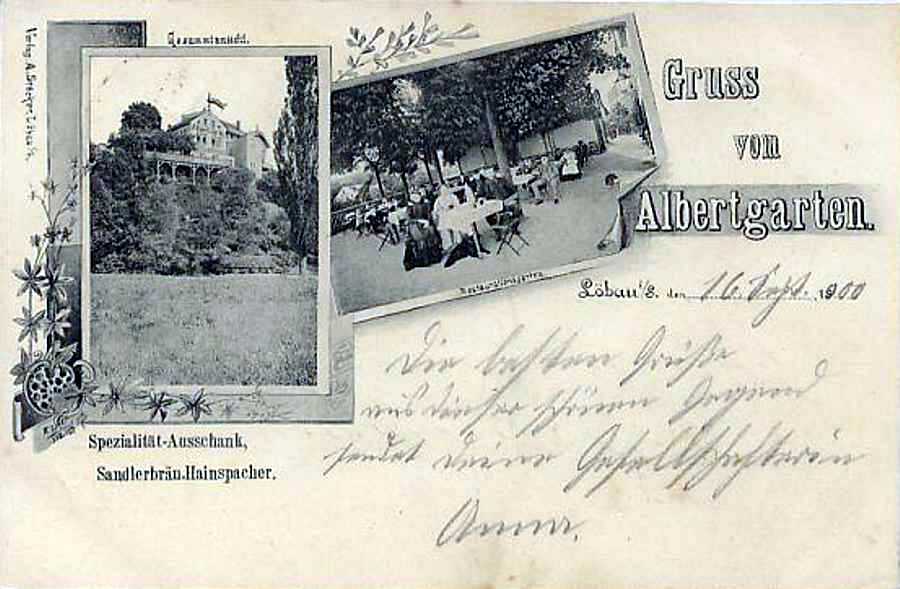 Gesammtansicht.
Gruss
vom
Albertgarten.
Restaurationsgarten
Löbau i/S. den 16. Sept. 1900
Die besten Grüße
aus dieser schönen Gegend
sendet deine Gesellschafterin
Anna.
Spezialität-Ausschank,
Sandlerbräu-Hainspacher.
Verlag A. Löbau i/S.